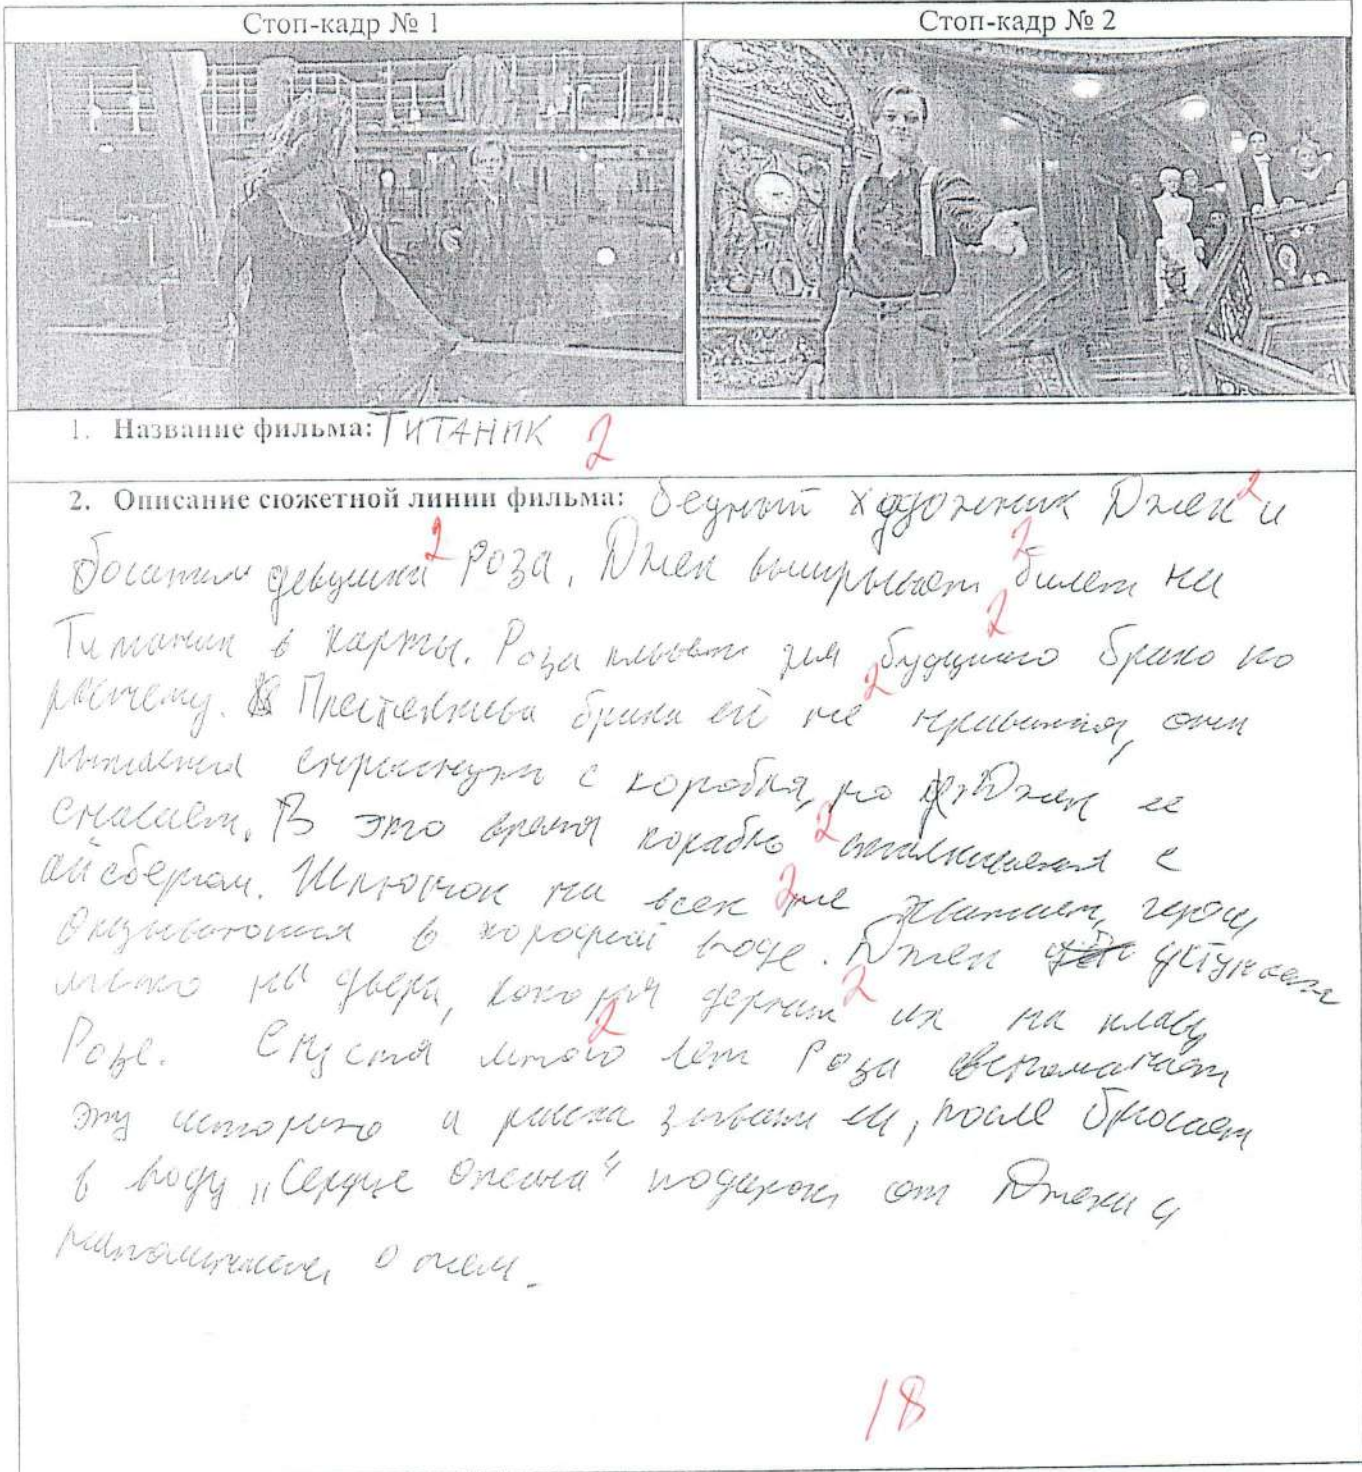 Стоп-кадр № 1
Стоп-кадр № 2
1. Название фильма: ТИТАНИК 2
2. Описание сюжетной линии фильма: бедный художник Джек 2 и
богатая девушка 2 Роза. Джек выигрывает 2 билет на
Титаник в карты. Роза плывет для 2 будущего брака по
расчету. Перспектива брака ей 2 не нравится, она
пытается спрыгнуть с корабля, но Джек ее
спасает. В это время корабль 2 сталкивается с
айсбергом. Шлюпок на всех 2 не хватает, герои
оказываются в холодной воде. Джек уступает
место на двери, которая держит 2 их на плаву
Розе. Спустя много 2 лет Роза вспоминает
эту историю и рассказывает ее, после бросает
в воду „Сердце Океана“ подарок от Джека и
о нем.
18